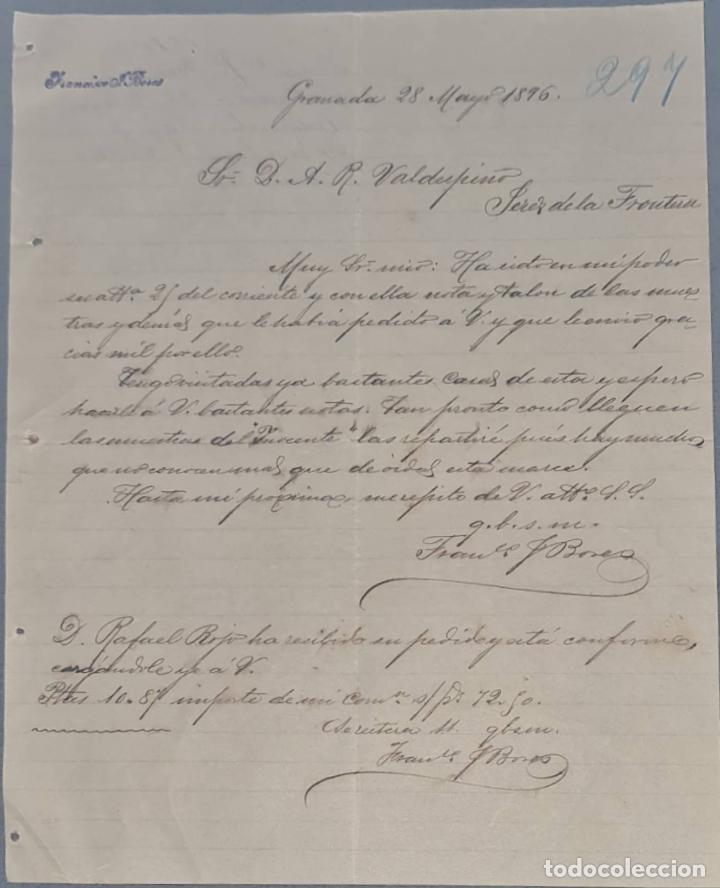 Francisco J. Bores
297
Granada 28 Mayo 1896.
Sr. D. A. R. Valdespino
Jerez de la Frontera
Muy Sr. mio: Ha sido en mi poder
su atta. 25 del corriente y con ella nota y talon de las mues
tras y demás que le habia pedido á V. y que le envio gra
cias mil por ello.
Tengo visitadas ya bastantes casas de esta y espero
hacerle á V. bastantes notas. Tan pronto como lleguen
las muestras del "Inocente" las repartiré pués hay muchos
que no conocen mas que de óidas esta marca.
Hasta mi próxima, me repito de V. atto. S. S.
q. b. s. m.
Franco. J Bores
D. Rafael Rojo ha recibido su pedido y está conforme,
cargándole yo á V.
Ptas 10.87 importe de mi comon. s/ptas. 72.50.
Se reitera st. qbsm.
Franco. J Bores
todocoleccion